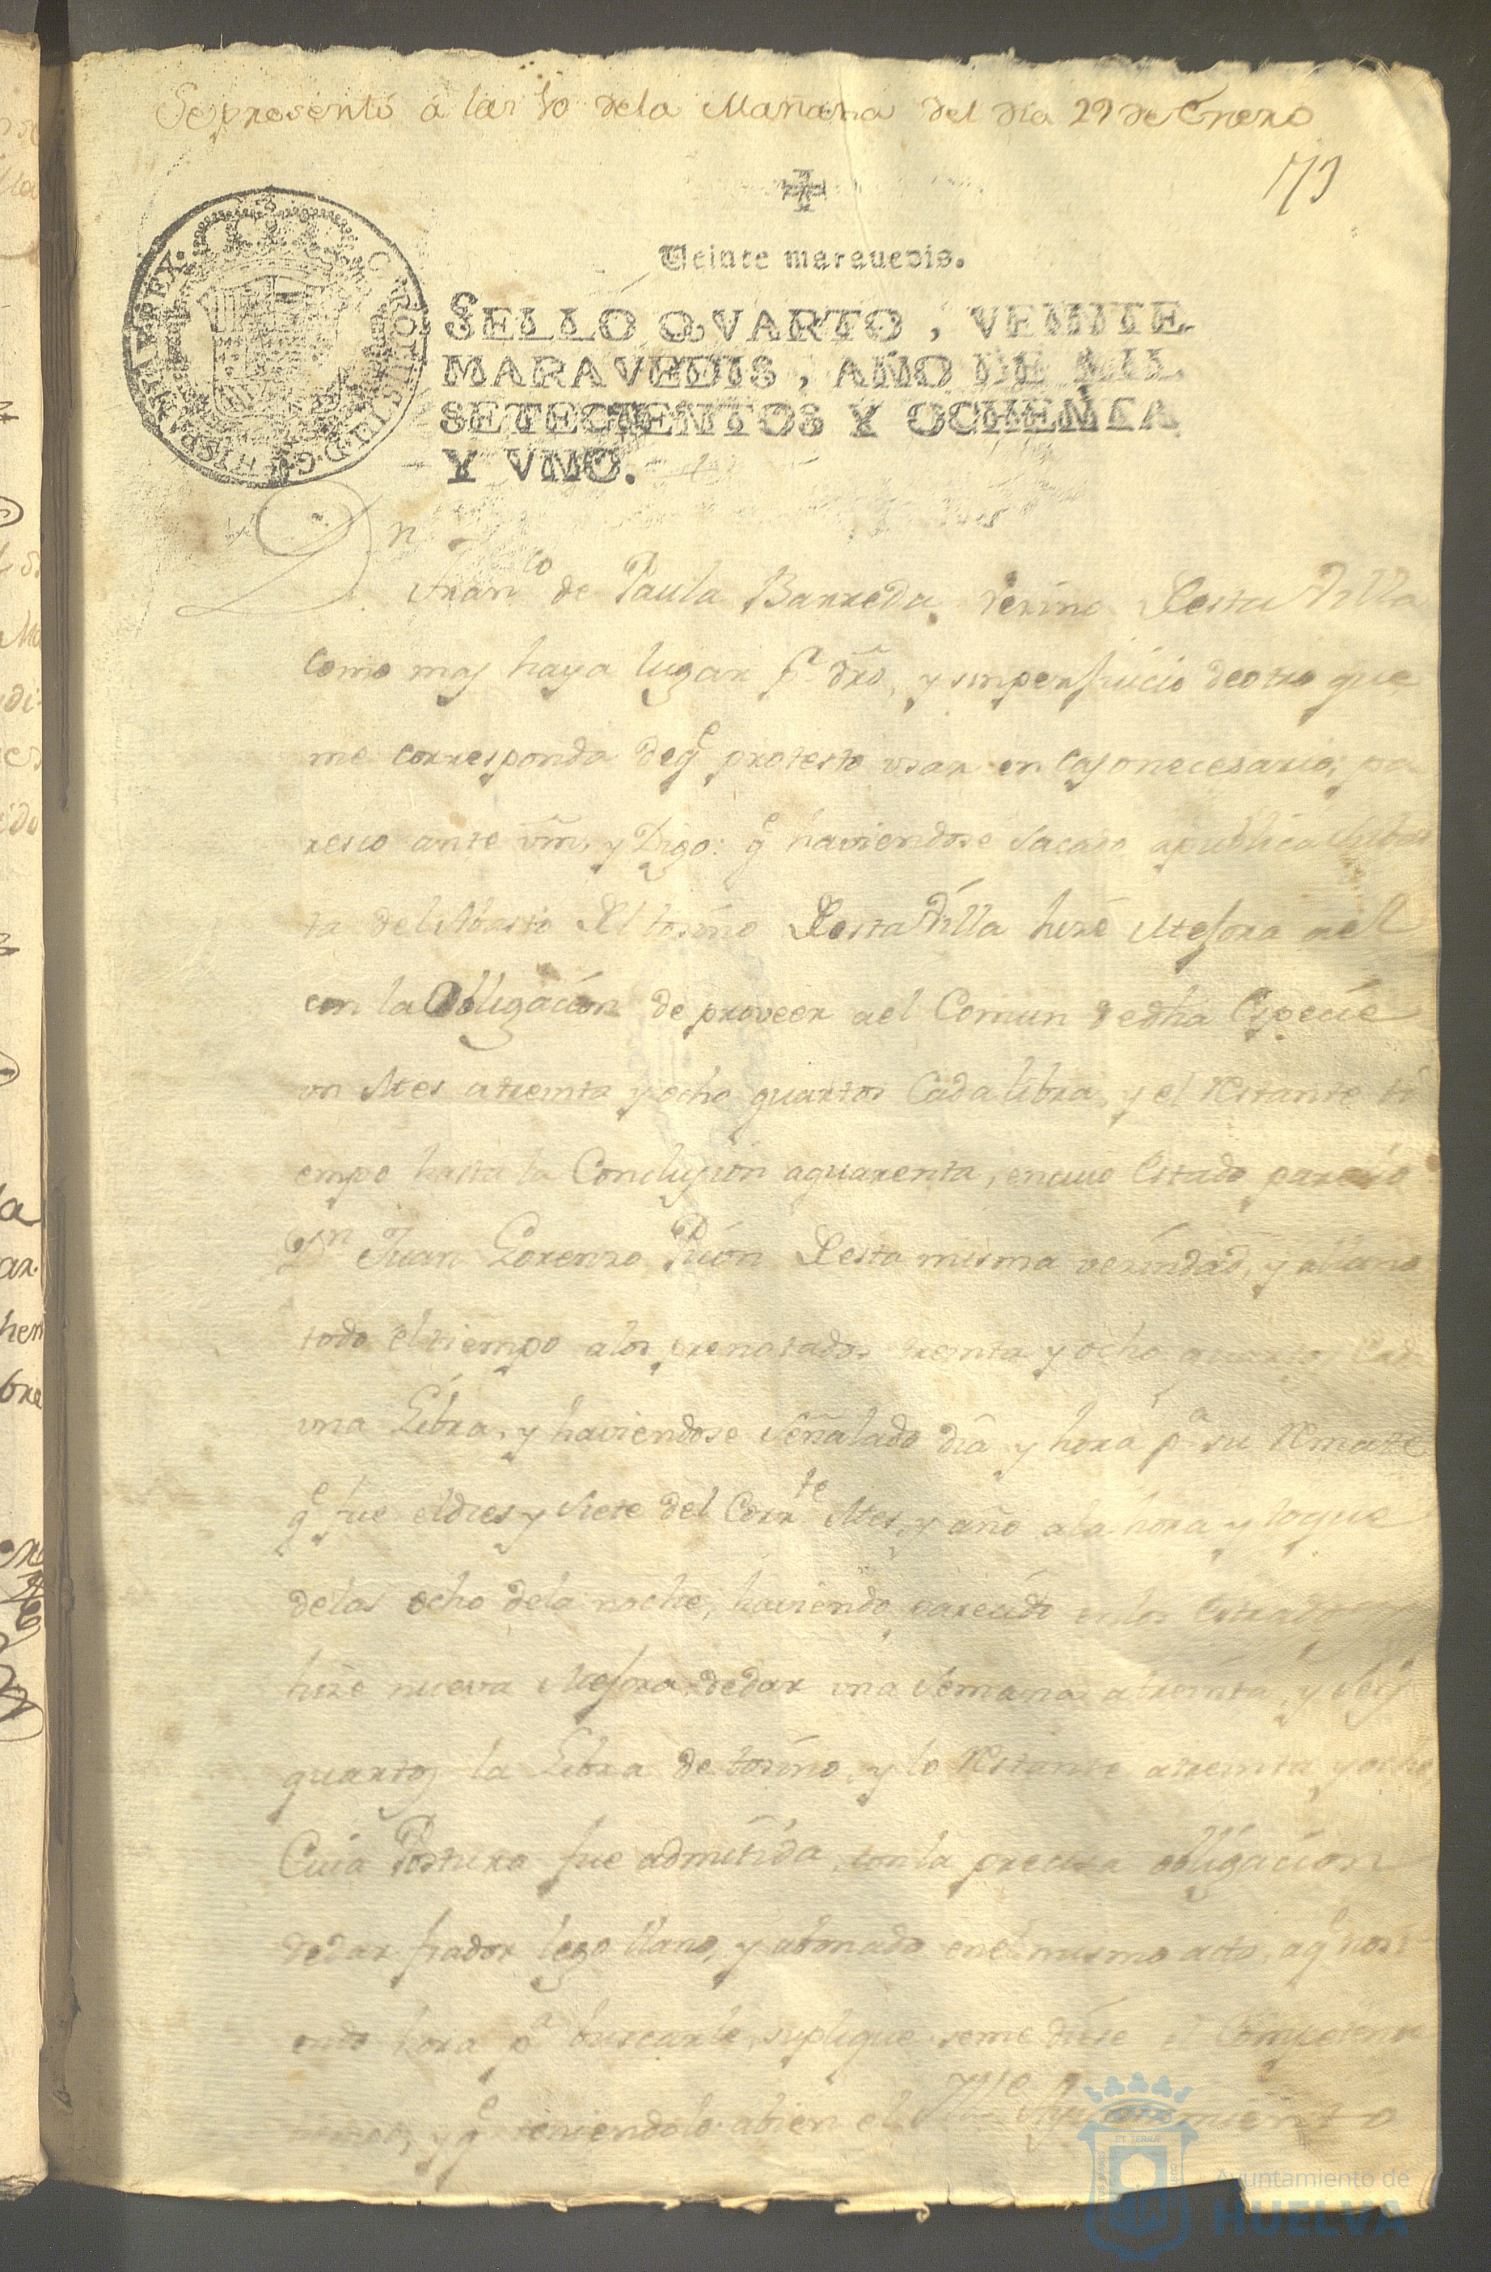 Sepresentó á las 10 dela Mañana del dia 29 de Enero
173
Veinte marauedis.
SELLO QVARTO, VEINTE
MARAVEDIS, AÑO DE MIL
SETECIENTOS Y OCHENTA
Y VNO.
CAROLUS III D.G. HISPANIAR REX.
Dn
Franco de Paula Barreda, vecino Desta Villa
como mas haya lugar pr dro, y sinperjuicio deotro que
me corresponda deqe protesto usar en casonecesario; pa
resco ante Vm, y Digo: qe haviendose sacado apublica subas
ta del Abasto del tosino Desta Villa hize Mejora ael
con la Obligación de proveer ael Comun dedha Especie
un Mes atreinta y ocho quartos Cada libra, y el restante ti
empo hasta la Conclusion aquarenta, encuio Estado parecio
Dn Juan Lorenzo Picón Desta misma vecindad, y allano
todo eltiempo alos prenotados treinta y ocho quartos cada
una Libra, y haviendose Señalado dia y hora pa su remate
qe fue eldies y Siete del Corrte Mes, y año ala hora y toque
delas ocho dela noche, haviendo parecido enlos Estrados
hize nueva Mejora dedar una Semana atreinta, y seis
quartos la Libra de tosino, y lo restante atreinta y ocho,
Cuia Postura fue admitida, conla precisa obligacion
dedar fiador lego llano, y abonado enel mismo acto, aqe nosi
endo hora pa buscarle, suplique seme diese el Competente
y qe teniendolo abien el Ylle Ayuntamiento
Ayuntamiento de
HUELVA